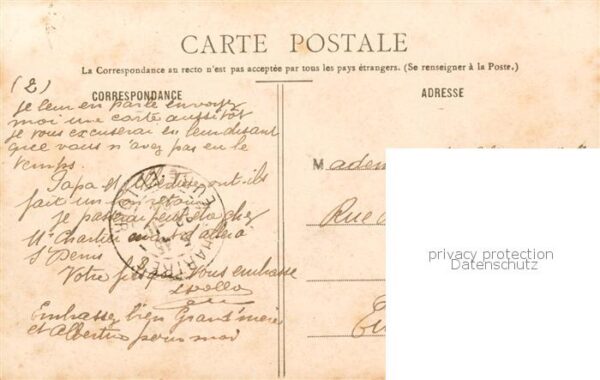 CARTE POSTALE
La Correspondance au recto n'est pas acceptée par tous les pays étrangers. (Se renseigner à la Poste.)
CORRESPONDANCE
ADRESSE
(2)
je leur en parle envoyez
moi une carte aussitôt
je vous excuserai en leur disant
que vous n'avez pas eu le
temps.
Papa et ont-ils
fait un bon retour
je passerai peut-etre chez
Mr Chartier avant d'aller a
St Denis
Votre qui vous embrasse
Embrassez bien Grand'mère
et Albertine pour moi
Madem
Rue
privacy protection
Datenschutz
CHARTRES